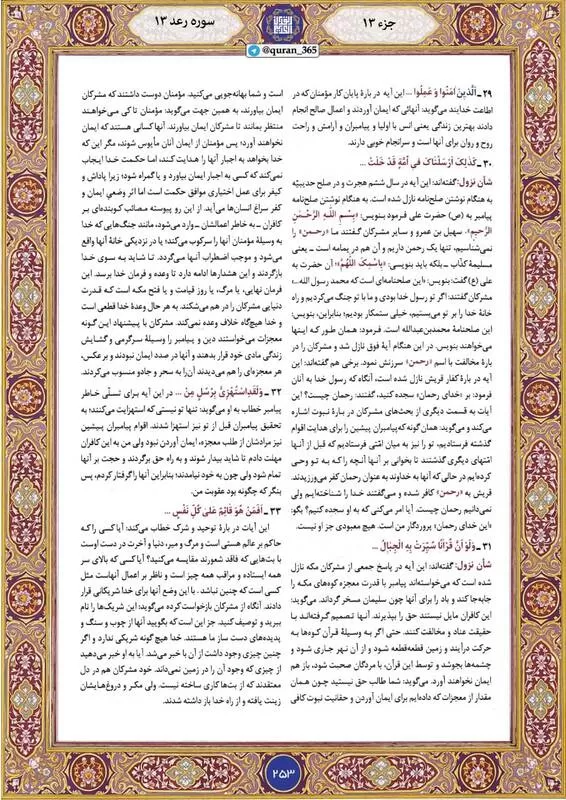 جزء ۱۳
سوره رعد ۱۳
@quran_365
۲۹ـ اَلَّذینَ امَنُوا وَ عَمِلُوا ... این آیه در بارهٔ پایان کار مؤمنان که در
اطاعت خدایند می‌گوید: آنهائی که ایمان آوردند و اعمال صالح انجام
دادند بهترین زندگی یعنی انس با اولیا و پیامبران و آرامش و راحت
روح و روان برای آنها است و سرانجام خوبی دارند.
۳۰ـ کَذلِکَ اَرْسَلْناکَ فی اُمَّةٍ قَدْ خَلَتْ ...
شأن نزول: گفته‌اند: این آیه در سال ششم هجرت و در صلح حدیبیّه
به هنگام نوشتن صلح‌نامه نازل شده است. به هنگام نوشتن صلح‌نامه
پیامبر به (ص) حضرت علی فرمود بنویس: «بِسْمِ اللهِ الرَّحْمـٰنِ
الرَّحیمِ». سهیل بن عمرو و سایر مشرکان گفتند ما «رحـمن» را
نمی‌شناسیم، تنها یک رحمن داریم و آن هم در یمامه است ـ یعنی
مسلیمهٔ کذّاب ـ بلکه باید بنویسی: «بِاسْمِکَ اللّهُمَّ»؛ آن حضرت به
علی (ع) گفت: بنویس: «این صلحنامه‌ای است که محمد رسول الله...»
مشرکان گفتند: اگر تو رسول خدا بودی و ما با تو جنگ می‌کردیم و راه
خانهٔ خدا را بر تو می‌بستیم، خیلی ستمکار بودیم؛ بنابراین، بنویس:
این صلحنامهٔ محمدبن‌عبدالله است. فرمود: همان طور کـه ایـنها
می‌خواهند بنویس. در این هنگام آیهٔ فوق نازل شد و مشرکان را در
بارهٔ مخالفت با اسم «رحمن» سرزنش نمود. برخی هم گفته‌اند: این
آیه در بارهٔ کفار قریش نازل شده است، آنگاه که رسول خدا به آنان
فرمود: بر «خدای رحمان» سجده کنید، گفتند: رحمان چیست؟ این
آیات به قسمت دیگری از بحث‌های مشرکان در بـارهٔ نبوت اشاره
می‌کند و می‌گوید: همان گونه که پیامبران پیشین را برای هدایت اقوام
گذشته فرستادیم، تو را نیز به میان امّتی فرستادیم که قبل از آنها
امّتهای دیگری گذشتند تا بخوانی بر آنها آنچه را کـه بـه تو وحـی
کرده‌ایم در حالی که آنها به خداوند به عنوان رحمان کفر می‌ورزیدند.
قریش به «رحمن» کافر شده و می‌گفتند خدا را شناخته‌ایم ولی
نمی‌دانیم رحمان چیست. آیا امر می‌کنی که به او سجده کنیم؟ بگو:
«این خدای رحمان» پروردگار من است. هیچ معبودی جز او نیست.
۳۱ـ وَلَوْ اَنَّ قُرْاناً سُیِّرَتْ بِهِ الْجِبالُ ...
شأن نزول: گفته‌اند: این آیه در پاسخ جمعی از مشرکان مکه نازل
شده است که می‌خواسته‌اند پیامبر با قدرت معجزه کوه‌های مکـه را
جابه‌جا کند و باد را برای آنها چون سلیمان مسخر گرداند. می‌گوید:
این کافران مایل نیستند حق را بپذیرند. آنها تـصمیم گـرفته‌انـد بـا
حقیقت عناد و مخالفت کنند. حتی اگر به وسیلهٔ قرآن کـوه‌ها بـه
حرکت درآیند و زمین قطعه‌قطعه شـود و از آن نـهر جـاری شـود و
چشمه‌ها بجوشد و توسط این قرآن، با مردگان صحبت شود، باز هم
ایمان نخواهند آورد. می‌گوید: شما طالب حق نیستید چـون همـان
مقدار از معجزات که داده‌ایم برای ایمان آوردن و حقانیت نبوت کافی
است و شما بهانه‌جویی می‌کنید. مؤمنان دوست داشتند که مشرکان
ایمان بیاورند، به همین جهت می‌گوید: مؤمنان تاکـی مـی‌خواهـند
منتظر بمانند تا مشرکان ایمان بیاورند. آنها کسانی هستند که ایمان
نخواهند آورد؛ پس مؤمنان از ایمان آنان مأیوس شوند، مگر این که
خدا بخواهد به اجبار آنها را هدایت کند، اما حکمت خدا ایـجاب
نمی‌کند که کسی به اجبار ایمان بیاورد و یا گمراه شود؛ زیرا پاداش و
کیفر برای عمل اختیاری موافق حکمت است اما اثر وضعی ایمان و
کفر سراغ انسان‌ها می‌آید. از این رو پیوسته مصائب کوبنده‌ای بر
کافران ـ به خاطر اعمالشان ـ وارد می‌شود، مانند جنگ‌هایی که خدا
به وسیلهٔ مؤمنان آنها را سرکوب می‌کند؛ یا در نزدیکی خانهٔ آنها واقع
می‌شود و موجب اضطراب آنهـا می‌گردد. تـا شـاید بـه سـوی خـدا
بازگردند و این هشدارها ادامه دارد تا وعده و فرمان خدا برسد. این
فرمان نهایی، یا مرگ، یا روز قیامت و یا فتح مکـه است کـه قـدرت
دنیایی مشرکان را در هم می‌شکند. به هر حال وعدهٔ خدا قطعی است
و خدا هیچ‌گاه خلاف وعده نمی‌کند. مشرکان با پیشنهاد این گونه
معجزات می‌خواستند دین و پیامبر را وسیلهٔ سـرگرمی و گشـایش
زندگی مادی خود قرار بدهند و آنها در صدد ایمان نبودند و برعکس،
هر معجزه‌ای را هم می‌دیدند آن را به سحر و جادو منسوب می‌کردند.
۳۲ـ وَلَقَدِاسْتُهْزِئَ بِرُسُلٍ مِنْ ... در این آیه برای تسلّـی خـاطر
پیامبر خطاب به او می‌گوید: تنها تو نیستی که استهزایت می‌کنند؛ به
تحقیق پیامبران قبل از تو نیز استهزا شدند. اقوام پیامبران پیشین
نیز مرادشان از طلب معجزه، ایمان آوردن نبود ولی من به این کافران
مهلت دادم تا شاید بیدار شوند و به راه حق برگردند و حجت بر آنها
تمام شود ولی چون به خود نیامدند؛ بنابراین آنها را گرفتار کردم، پس
بنگر که چگونه بود عقوبت من.
۳۳ـ اَفَمَنْ هُوَ قائِمٌ عَلیٰ کُلِّ نَفْسٍ ...
این آیات در بـارهٔ توحید و شرک خطاب می‌کند: آیا کسی را کـه
حاکم بر عالم هستی است و مرگ و میر، دنیا و آخرت در دست اوست
با بت‌هایی که فاقد شعورند مقایسه می‌کنید؟ آیا کسی که بالای سر
همه ایستاده و مراقب همه چیز است و ناظر بر اعمال آنهاست مثل
کسی است که چنین نباشد. با این وضع آنها برای خدا شریکانی قرار
دادند. آنگاه از مشرکان بازخواست کرده می‌گوید: این شریک‌ها را نام
ببرید و توصیف کنید. جز این است که بگویید آنها از چوب و سنگ و
پدیده‌های دست ساز ما هستند. خدا هیچ گونه شریکی ندارد و اگر
چنین چیزی وجود داشت از آن با خبر می‌شد. آیا به او خبر می‌دهید
از چیزی که وجود آن را در زمین نمی‌داند. خود مشرکان هم در دل
معتقدند که از بت‌ها کاری ساخته نیست. ولی مکر و دروغ‌هایشان
زینت یافته و از راه خدا باز داشته شدند.
۲۵۳